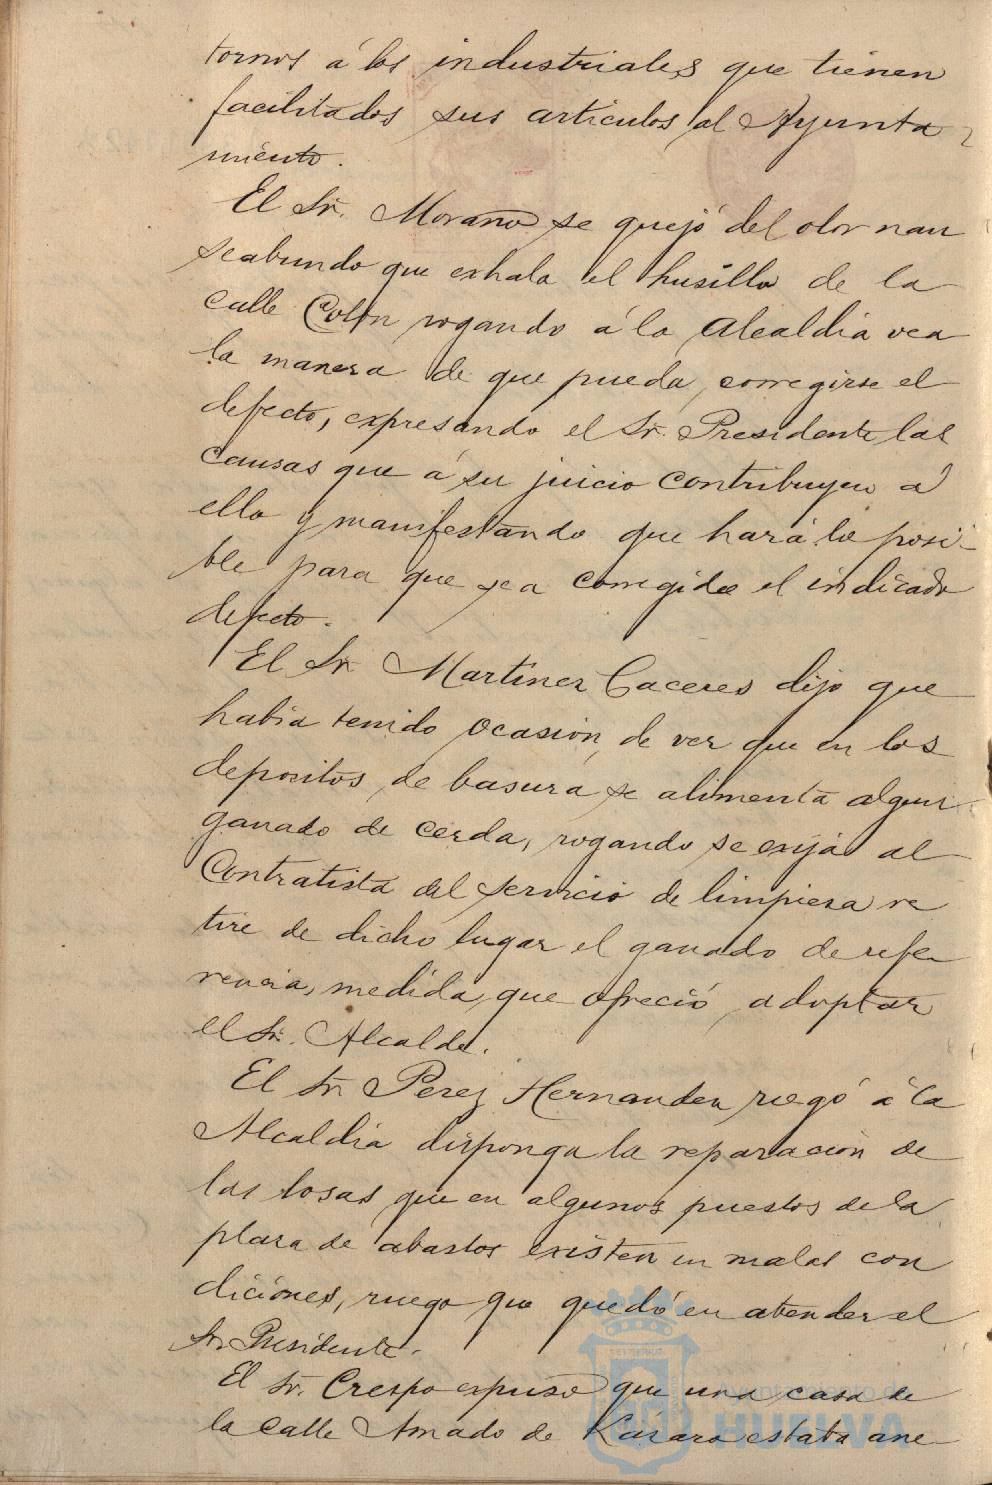 tornos á los industriales que tienen
facilitados sus articulos al Ayunta
miento.
El Sr. Morano se quejó del olor nau
seabundo que exhala el husillo de la
calle Colón rogando á la Alcaldia vea
la manera de que pueda corregirse el
defecto, expresando el Sr. Presidente las
causas que á su juicio contribuyen á
ello y manifestando que hará lo posi-
ble para que sea corregido el indicado
defecto.
El Sr. Martinez Caceres dijo que
habia tenido ocasión de ver que en los
depositos de basura se alimenta algun
ganado de cerda, rogando se exija al
Contratista del servicio de limpieza re
tire de dicho lugar el ganado de refe
rencia, medida que ofreció adoptar
el Sr. Alcalde.
El Sr. Perez Hernandez rogó á la
Alcaldia disponga la reparación de
las losas que en algunos puestos de la
plaza de abastos existen en malas con
diciones, ruego que quedó en atender el
Sr. Presidente.
El Sr. Crespo expuso que una casa de
la calle Amado de Lazaro estaba ane
Ayuntamiento de
HUELVA